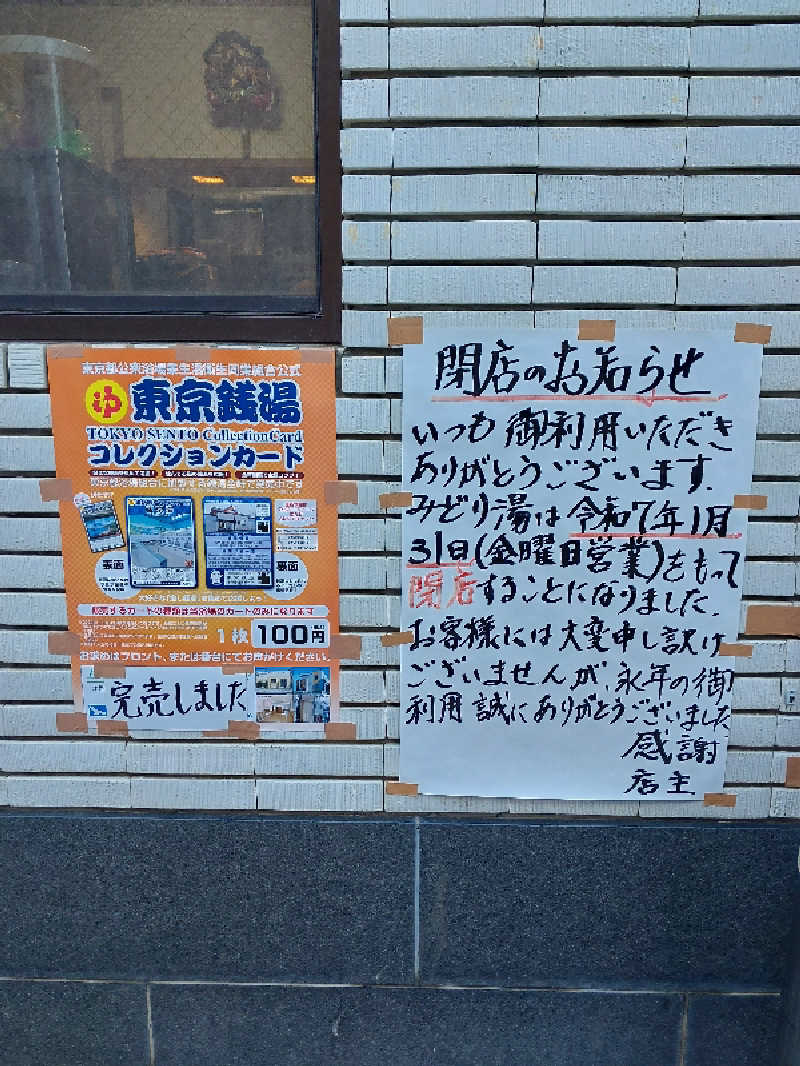 東京都公衆浴場業生活衛生同業組合公式
ゆ 東京銭湯
TOKYO SENTO CollectionCard
コレクションカード
裏面
裏面
販売するカードの種類は当浴場のカードのみに限ります
1枚 100円
お求めはフロント、または番台にてお声がけください。
完売しました
閉店のお知らせ
いつも御利用いただき
ありがとうございます.
みどり湯は令和7年1月
31日(金曜日営業)をもって
閉店することになりました.
お客様には大変申し訳け
ございませんが、永年の御
利用誠にありがとうございました
感謝
店主